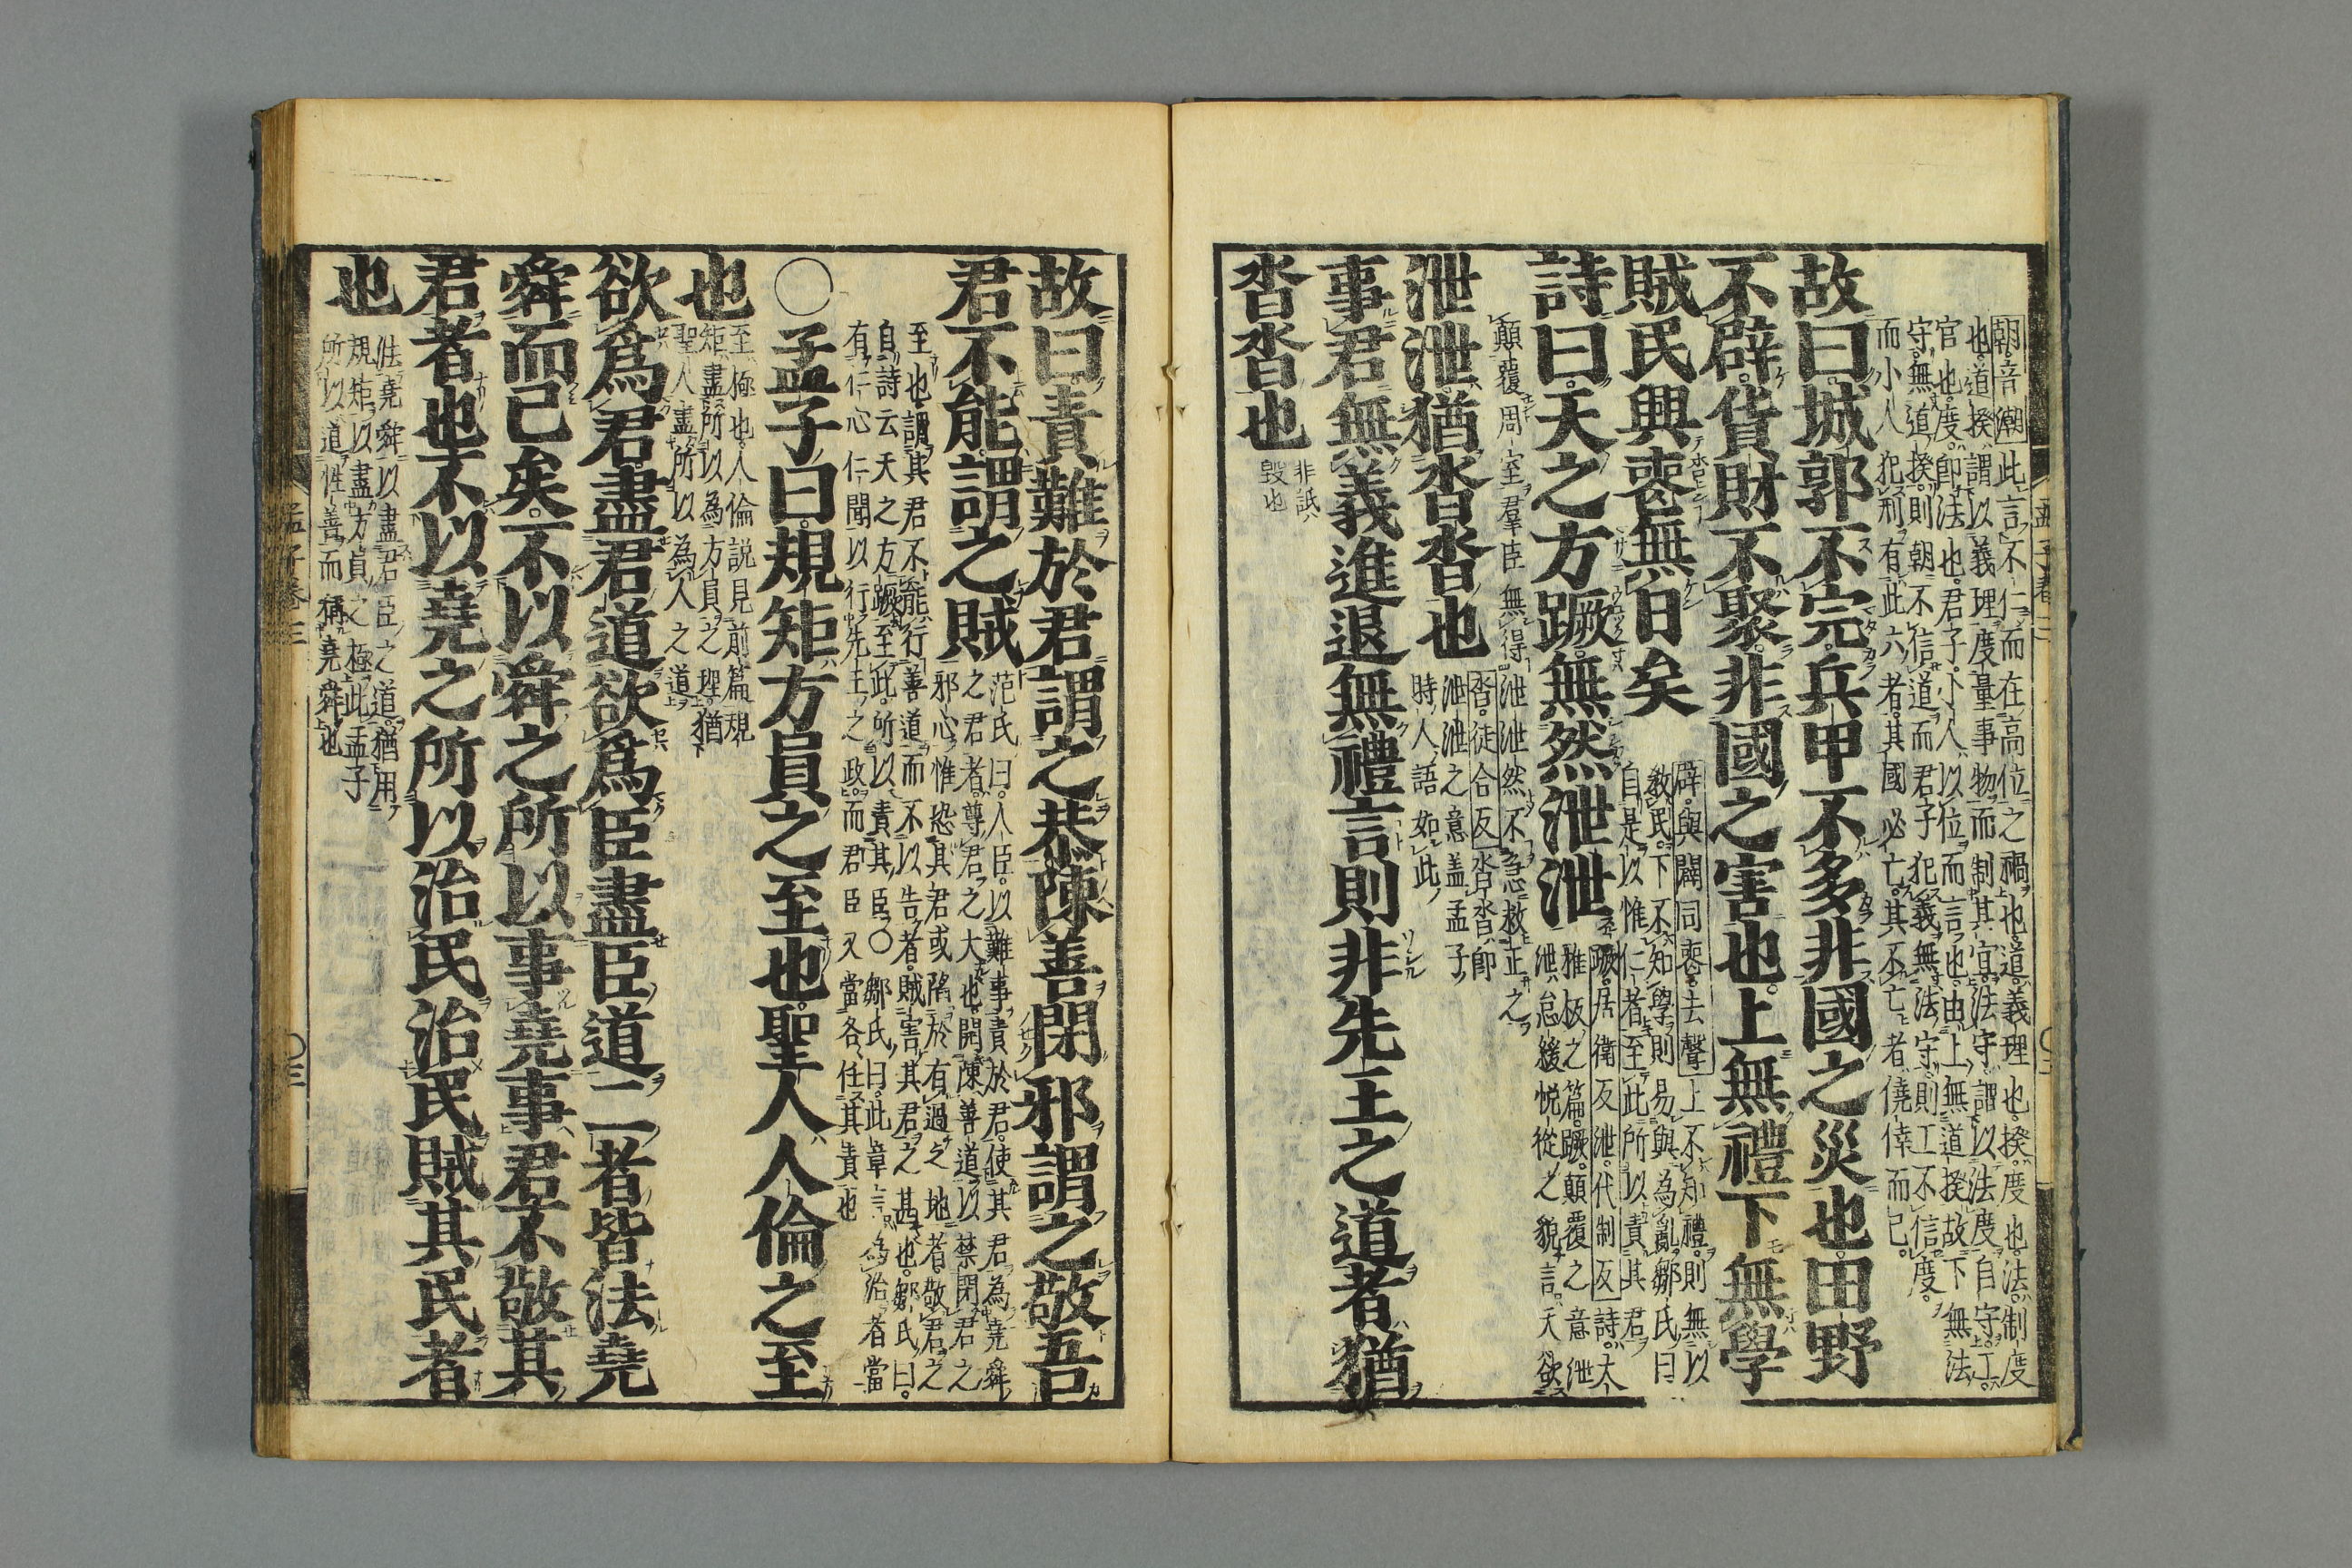 朝音潮此言不仁而在高位之禍也道義理也揆度也法制度
也道揆謂以義理度量事物而制其宜法守謂以法度自守工
官也度即法也君子小人以位而言也由上無道揆故下無法
守無道揆則朝不信道而君子犯義無法守則工不信度
而小人犯刑有此六者其國必亡其不亡者僥倖而已
故曰城郭不完兵甲不多非國之災也田野
不辟貨財不聚非國之害也上無禮下無學
賊民興喪無日矣
辟與闢同喪去聲上不知禮則無以
教民下不知學則易與為亂鄒氏曰
自是以惟仁者至此所以責其君
詩曰天之方蹶無然泄泄
蹶居衛反泄代制反詩大
雅板之篇蹶顛覆之意泄
泄怠緩悅從之貌言天欲
顛覆周室羣臣無得泄泄然不急救正之
泄泄猶沓沓也
沓徒合反沓沓即
泄泄之意盖孟子
時人語如此
事君無義進退無禮言則非先王之道者猶
沓沓也
非詆
毀也
故曰責難於君謂之恭陳善閉邪謂之敬吾
君不能謂之賊
范氏曰人臣以難事責於君使其君為堯舜
之君者尊君之大也開陳善道以禁閉君之
邪心惟恐其君或陷於有過之地者敬君之
至也謂其君不能行善道而不以告者賊害其君之甚也鄒氏曰
自詩云天之方蹶至此所以責其臣○鄒氏曰此章言為治者當
有仁心仁聞以行先王之政而君臣又當各任其責也
○孟子曰規矩方員之至也聖人人倫之至
也
至極也人倫説見前篇規
矩盡所以為方員之理猶
聖人盡所以為人之道
欲為君盡君道欲為臣盡臣道二者皆法堯
舜而已矣不以舜之所以事堯事君不敬其
君者也不以堯之所以治民治民賊其民者
也
法堯舜以盡君臣之道猶用
規矩以盡方員之極此孟子
所以道性善而稱堯舜也
孟子卷三